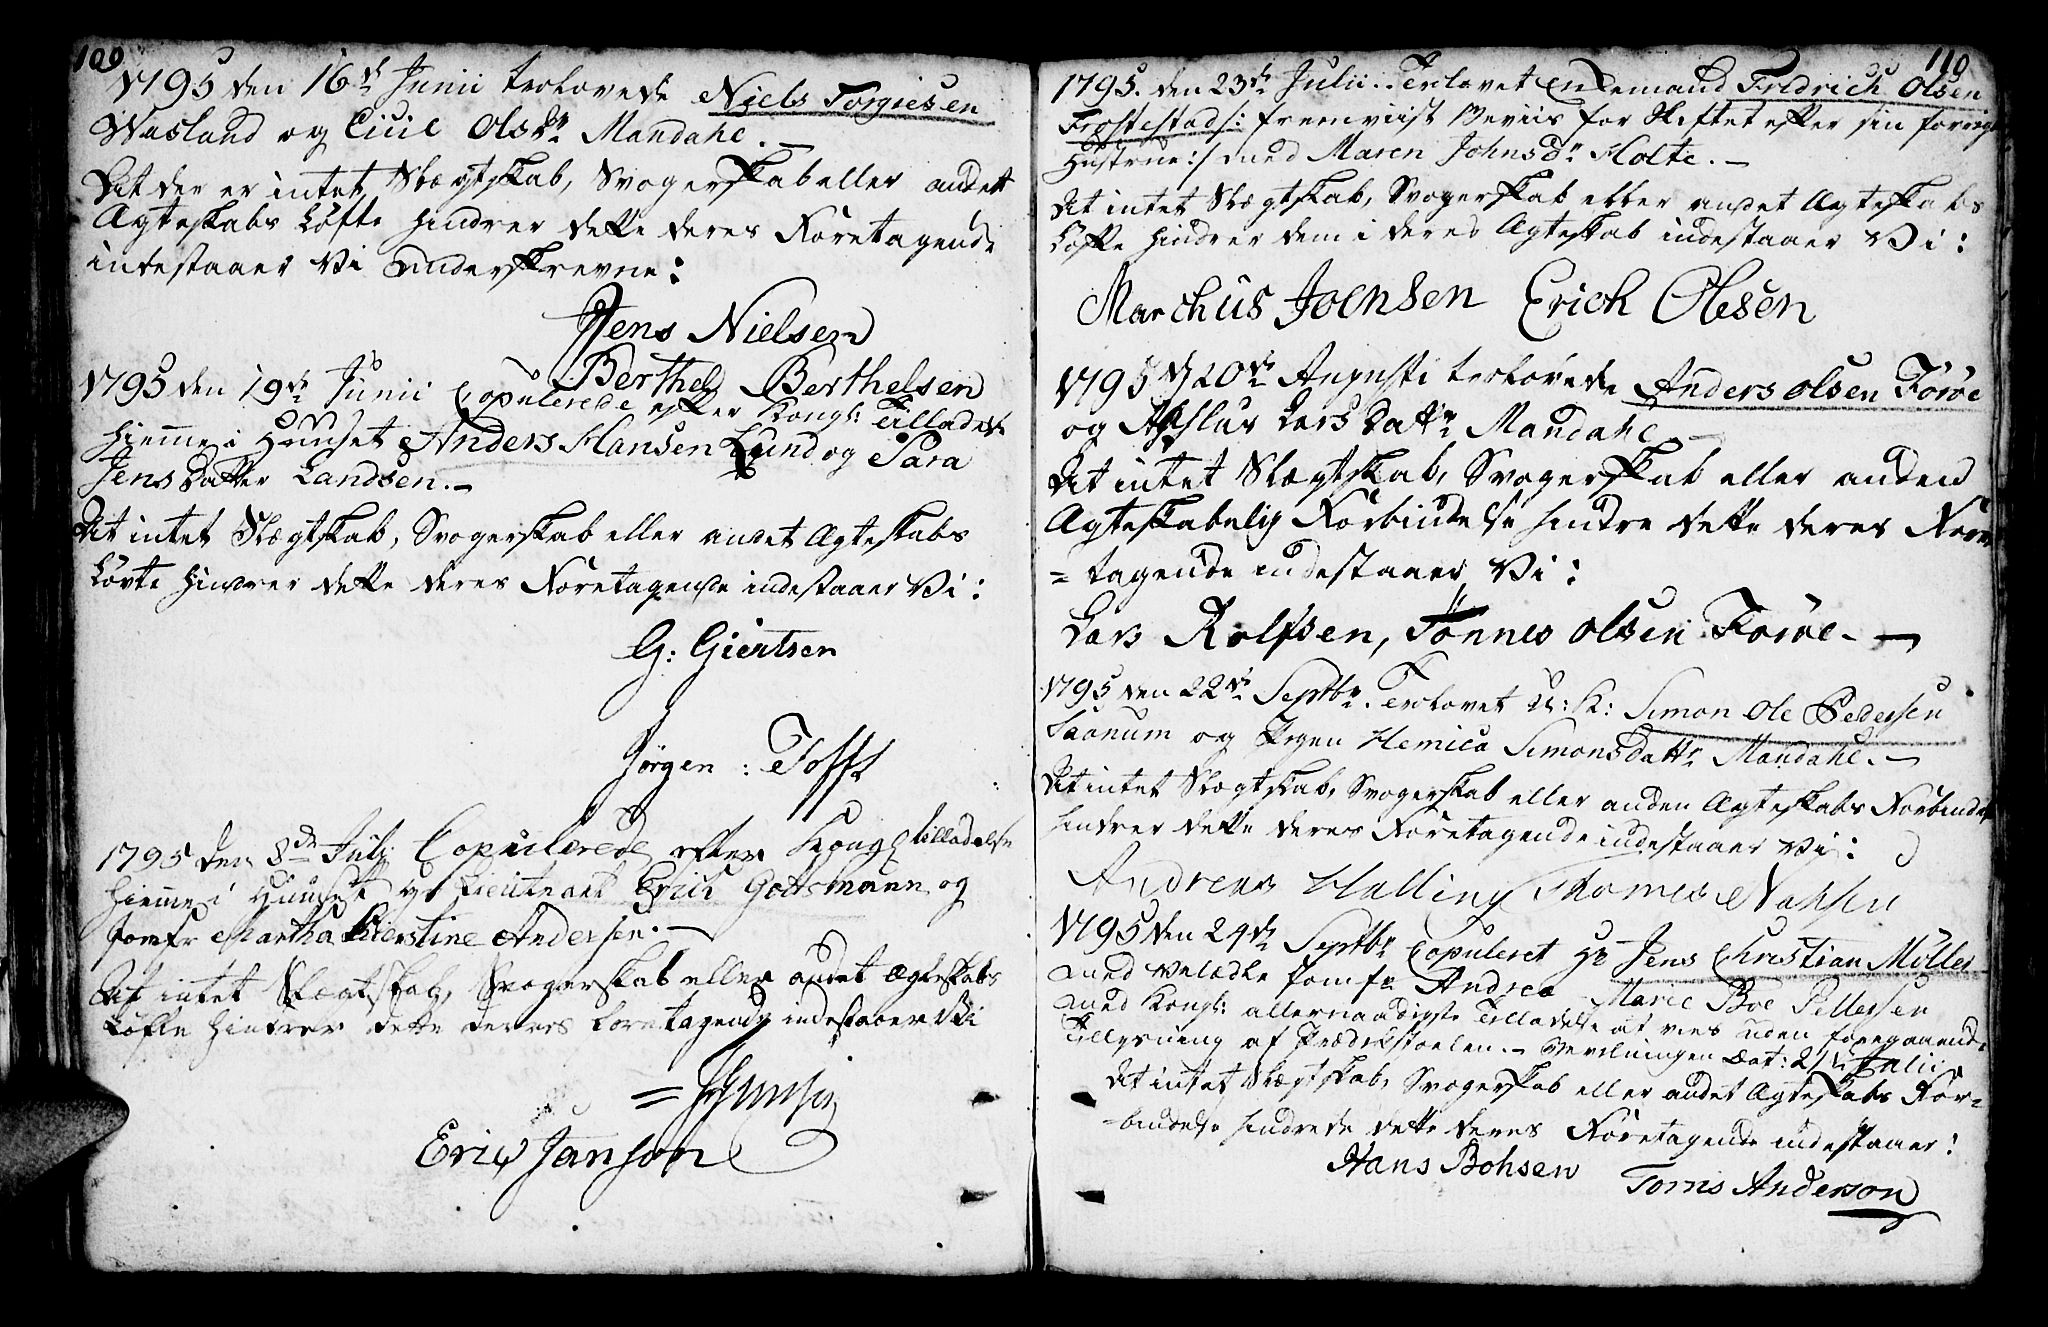 109
1795 den 16de Junii trolovede Niels Torgiesen
Wasland og Ciuil Olsdr Mandahl. —
At der er intet Slægtskab, Svogerskab eller andet
Ægteskabs Løfte hindrer dette deres Foretagende
indestaaer Vi underskrevne:
Jens Nielsen
Berthel Berthelsen
1795 den 19de Junii Copulerede efter Kongl: Tilladelse
hiemme i Huuset Anders Hansen Lund og Sara
Jens Datter Landsen. —
At intet Slægtskab, Svogerskab eller andet Ægteskabs
Løvte hindrer dette deres Foretagende indestaaer Vi:
G: Giertsen
Jørgen : Tofft
1795 den 8de Julj Copulerede efter Kongl tilladelse
hiemme i Huuset Hr Lieutenant Erich Gottsmann og
Jomfr Martha Kierstine Andersen. —
At intet Slægtskab, Svogerskab eller andet Ægteskabs
Løfte hindrer dette deres Foretagende indestaaer Vi
Eric Janson
110
1795. den 23de Julii. Trolovet Enkemand Fredrich Olsen
Frøstestad /: fremviist Beviis for Skiftet efter sin forrige
Hustrue :/ med Maren Johnsdr Holte. —
At intet Slægtskab, Svogerskab eller andet Ægteskabs
Løfte hindrer dem i deres Ægteskab indestaaer Vi:
Marchus Joensen Erich Olesen
1795 d 20de Augusti trolovede Anders Olsen Forøe
og Aslau Lars Dattr Mandahl —
At intet Slægtskab, Svogerskab eller anden
Ægteskabelig Forbindelse hindre dette deres Fore
= tagende indestaaer Vi:
Lars Rolfsen, Tønnes Olsen Forøe. —
1795 den 22de Septbr. Trolovet U: K: Simon Ole Pedersen
Saanum og Pigen Hemica Simonsdattr Mandahl. —
At intet Slægtskab, Svogerskab eller anden Ægteskabs Forbindelse
hindrer dette deres Foretagende indestaaer Vi:
Andreas Halling Thomes
1795 den 24de Septbr Copuleret Hr Jens Christian Möller
med Velædle Jomfr Andrea Marie Boe Pettersen
med Kongl: allernaadigste Tilladelse at vies uden foregaaende
Tillysning af Prædikestoelen. — Bevilningen Dat: Julii
At intet Slægtskab, Svogerskab eller andet Ægteskabs For=
= bindelse hindrede dette deres Foretagende indestaaer:
Hans Bohsen Torris Anderson